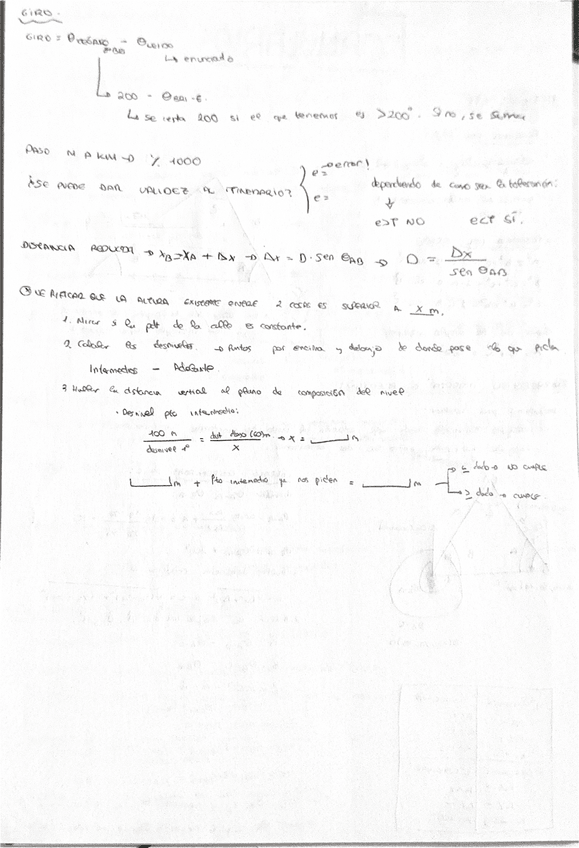 GIRO.
GIRO = θ - θLEIDO
↳ enunciado
↳ 200 - θ
↳ se resta 200 si el que tenemos es >200°. Si no, se suma
PASO M A KM → % 1000
¿SE PUEDE DAR VALIDEZ AL ITINERARIO?
e = → error!
e =
dependiendo de como sea la tolerancia:
↓
e>T NO e<T SÍ.
DISTANCIA REDUCIDA → XB = XA + ΔX → ΔX = D · sen θAB → D = ΔX / sen θAB
VERIFICAR QUE LA ALTURA EXISTENTE ENTRE 2 COTAS ES SUPERIOR A X m.
1. Mirar si la pdte de la calle es constante.
2. Calcular los desniveles. → Puntos por encima y debajo de donde pase lo que pida
Intermedias - Adelante
3. Hallar la distancia vertical al plano de comparación del nivel
· Desnivel pto intermedio:
100 m / desnivel 1º = dist / X → X = ____ m
____ m + Pto intermedio que nos piden = ____ m
≤ dado → NO CUMPLE
≥ dado → CUMPLE